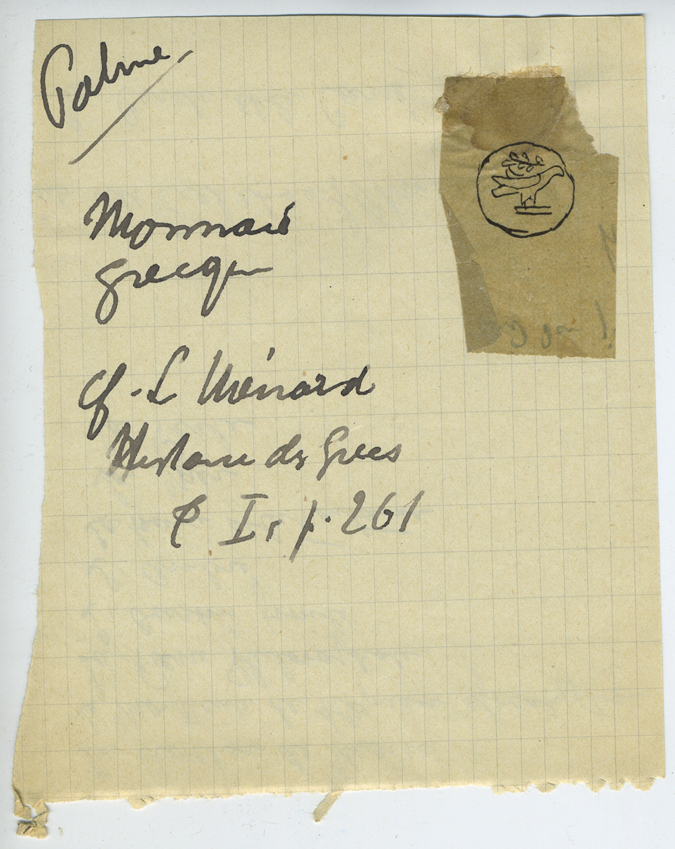 Palme
Monnaie
grecque
cf. L Ménard
Histoire des Grecs
T I, p. 261